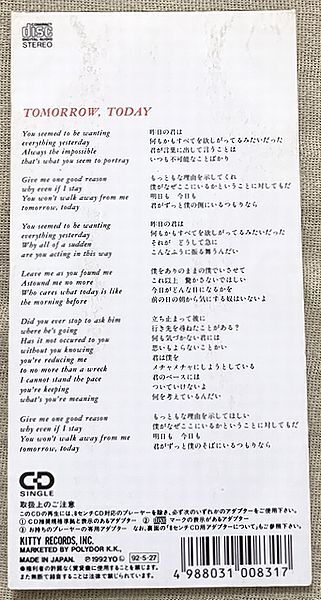 COMPACT
disc
DIGITAL AUDIO
STEREO
TOMORROW, TODAY
You seemed to be wanting
everything yesterday
Always the impossible
that's what you seem to portray
昨日の君は
何もかもすべてを欲しがってるみたいだった
君が言葉に出して言うことは
いつも不可能なことばかり
Give me one good reason
why even if I stay
You won't walk away from me
tomorrow, today
もっともな理由を示してくれ
僕がなぜここにいるかということに対してもだ
明日も 今日も
君がずっと僕の側にいるつもりなら
You seemed to be wanting
everything yesterday
Why all of a sudden
are you acting in this way
昨日の君は
何もかもすべてを欲しがってるみたいだった
それが どうして急に
こんなふうに振る舞うんだい
Leave me as you found me
Astound me no more
Who cares what today is like
the morning before
僕をありのままの僕でいさせて
これ以上 驚かさないでほしい
今日がどんな日になるかを
前の日の朝から気にする奴はいないよ
Did you ever stop to ask him
where he's going
Has it not occured to you
without you knowing
you're reducing me
to no more than a wreck
I cannot stand the pace
you're keeping
what's you're meaning
立ち止まって彼に
行き先を尋ねたことがある?
何も気づかない君には
思いもよらないことかい
君は僕を
メチャメチャにしようとしている
君のペースには
ついていけないよ
何を考えているんだい
Give me one good reason
why even if I stay
You won't walk away from me
tomorrow, today
もっともな理由を示してほしい
僕がなぜここにいるかということに対してもだ
明日も 今日も
君がずっと僕のそばにいるつもりなら
CD
SINGLE
取扱上のご注意
このCDの再生には、8センチCD対応のプレーヤーを除き、必ず次のいずれかのアダプターをご使用下さい。
① CD推奨規格準拠と表示のあるアダプター ② マークの表示があるアダプター
③ お持ちのプレーヤーの専用アダプター なお、裏面の「8センチCD用アダプターについて」もご参照下さい。
KITTY RECORDS, INC.
MARKETED BY POLYDOR K.K.,
MADE IN JAPAN. Ⓟ1992 YO 92・5・27
●権利者の許諾なく賃貸業に使用することを禁じます。
また無断で録音することは法律で禁じられています。
4 988031 008317